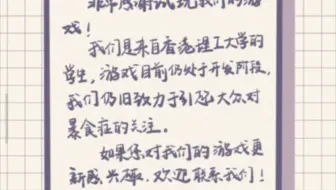 非常感谢试玩我们的游
戏！
我们是来自香港理工大学的
学生，游戏目前仍处于开发阶段，
我们仍旧致力于引起大众对
暴食症的关注。
如果您对我们的游戏更
新感兴趣，欢迎联系我们！